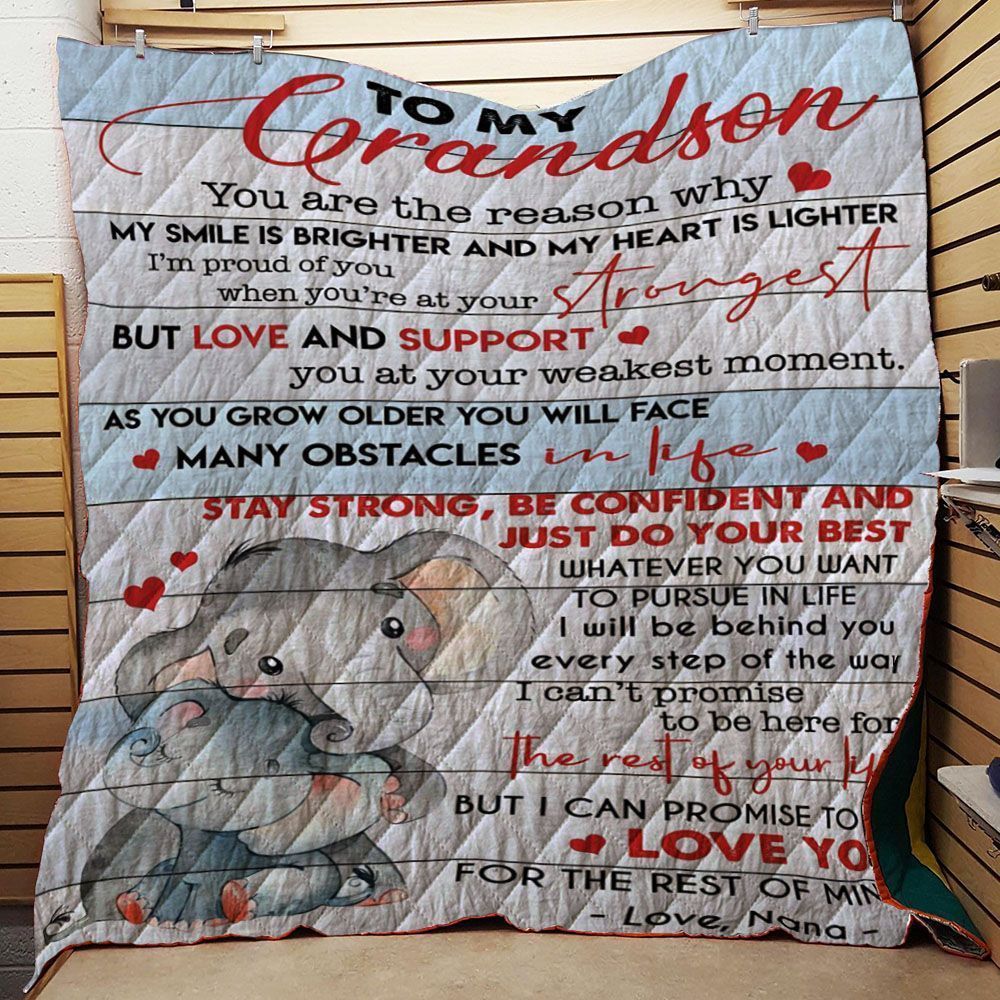 TO MY
Grandson
You are the reason why
MY SMILE IS BRIGHTER AND MY HEART IS LIGHTER
I'm proud of you
when you're at your strongest
BUT LOVE AND SUPPORT
you at your weakest moment.
AS YOU GROW OLDER YOU WILL FACE
MANY OBSTACLES in life
STAY STRONG, BE CONFIDENT AND
JUST DO YOUR BEST
WHATEVER YOU WANT
TO PURSUE IN LIFE
I will be behind you
every step of the way
I can't promise
to be here for
the rest of your li
BUT I CAN PROMISE TO
LOVE YO
FOR THE REST OF MIN
- Love, Nana -